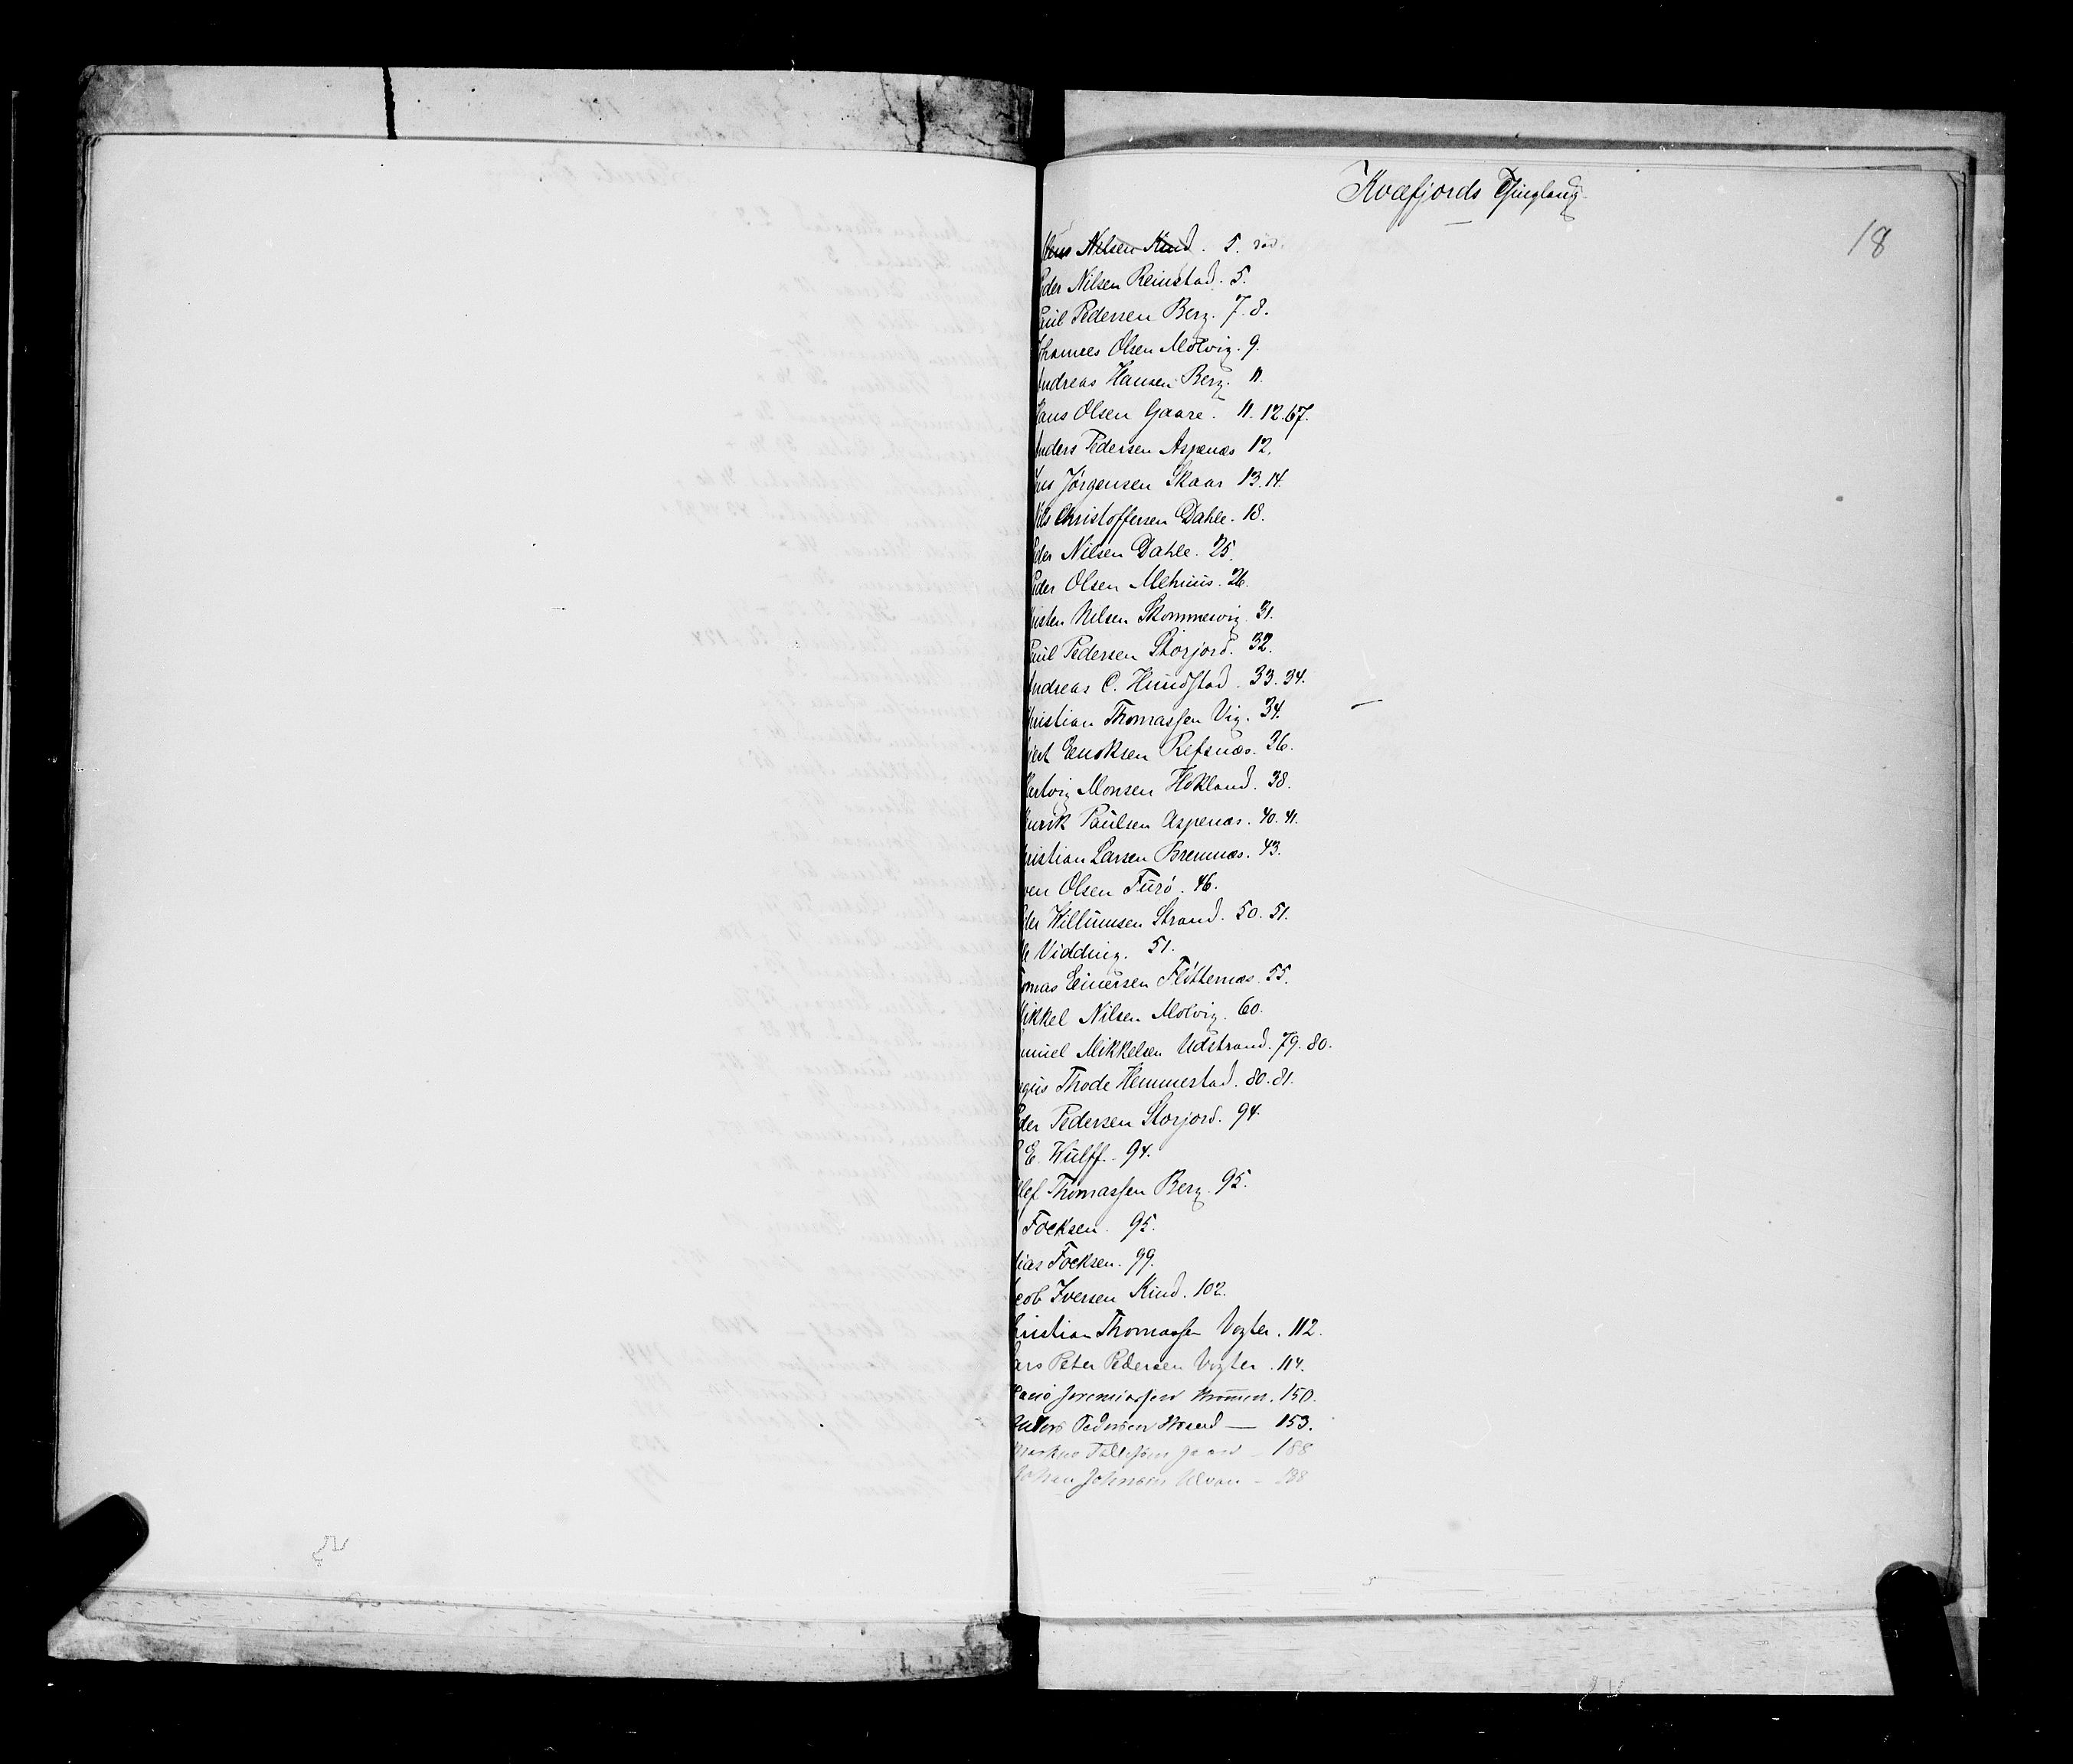 Kvæfjords Thinglaug
18
Nilsen Kind. 5.
eder Nilsen Reinstad. 5.
aul Pedersen Berg. 7. 8.
ohannes Olsen Molvig. 9.
ndreas Hansen Berg. 11.
ans Olsen Gaare. 11. 12. 67.
nders Pedersen Aspenæs 12.
ens Jørgensen Skaar 13. 14.
ils Christoffersen Dahle. 18.
eder Nilsen Dahle. 25.
eder Olsen Mehuus. 26.
isten Nilsen Skommesvig. 31.
aul Pedersen Storjord. 32.
ndreas C. Hundstad. 33. 34.
hristian Thomassen Vig. 34.
ert Enoksen Refsnæs. 36.
artvig Monsen Hokland. 38.
nrik Paulsen Aspenæs. 40. 41.
ristian Larsen Bremnæs. 43.
ven Olsen Furø. 46.
der Willumsen Strand. 50. 51.
Vidding. 51.
omas Einersen Fløttenæs. 55.
ikkel Nilsen Molvig. 60.
muel Mikkelsen Udstrand. 79. 80.
agus Thode Hemmestad. 80. 81.
der Pedersen Storjord. 94.
E. Wulff. 94.
llef Thomassen Berg. 95.
Focksen. 95.
lias Focksen. 99.
cob Iversen Kind. 102.
hristian Thomassen Vogter. 112.
ars Peter Pedersen Vogter. 114.
Jeremiassen 150.
Anders Pedersen Strand — 153.
Markus Tollefsen — 188
Johan Johnsen — 188